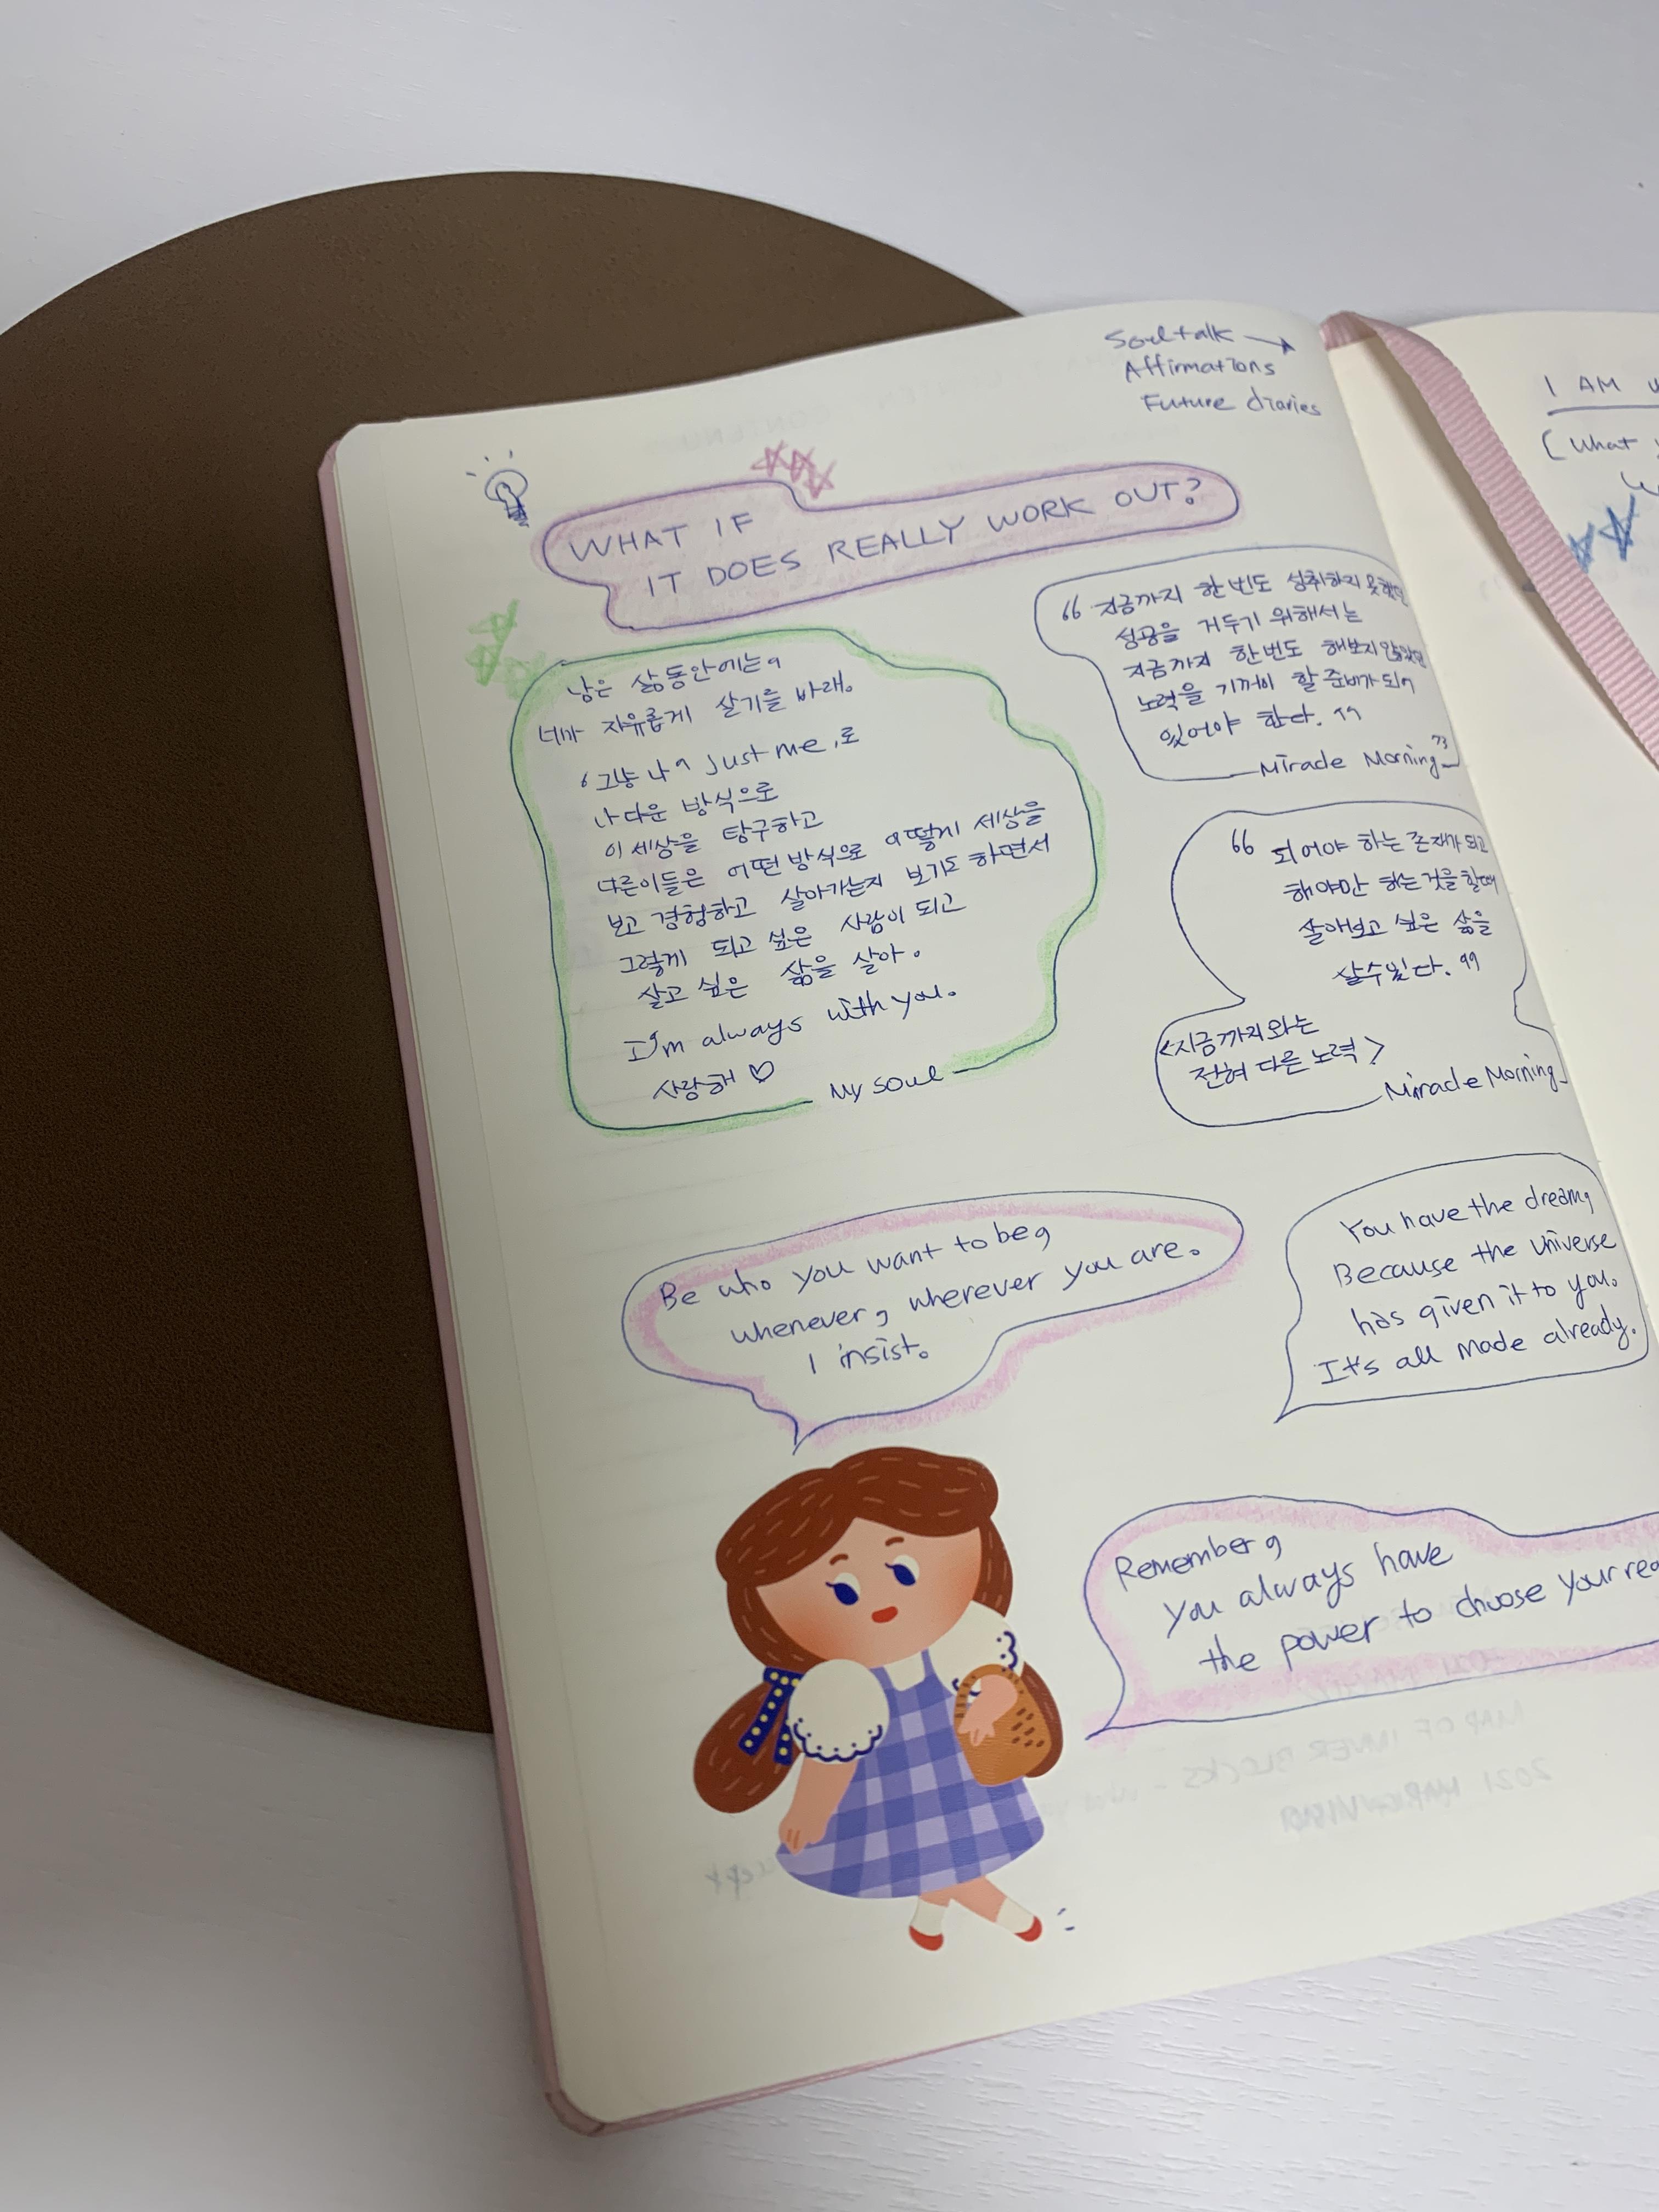 Soul talk →
Affirmations
Future diaries
WHAT IF
IT DOES REALLY WORK OUT?
남은 삶동안에는,
너가 자유롭게 살기를 바래.
'그냥 나' Just me, 로
나다운 방식으로
이 세상을 탐구하고
다른이들은 어떤 방식으로 어떻게 세상을
보고 경험하고 살아가는지 보기도 하면서
그렇게 되고 싶은 사람이 되고
살고 싶은 삶을 살아.
I'm always with you.
사랑해 ♡
My soul
“ 지금까지 한번도 성취하지 못했던
성공을 거두기 위해서는
지금까지 한번도 해보지 않았던
노력을 기꺼이 할 준비가 되어
있어야 한다. ”
Miracle Morning
“ 되어야 하는 존재가 되고
해야만 하는 것을 할때
살아보고 싶은 삶을
살수있다. ”
<지금까지와는
전혀 다른 노력>
Miracle Morning
Be who you want to be,
whenever, wherever you are.
I insist.
You have the dream,
Because the universe
has given it to you.
It's all made already.
Remember,
you always have
the power to choose your
I AM
(What